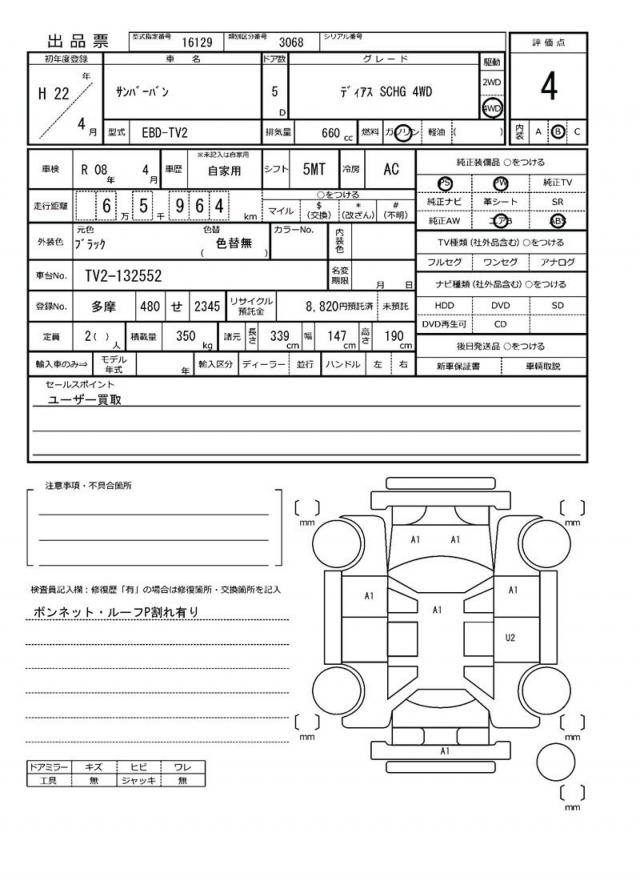 出品票 型式指定番号 16129 類別区分番号 3068 シリアル番号
初年度登録 車名 ドア数 グレード 駆動 評価点
H 22 年 4 月 サンバーバン 5 D ディアス SCHG 4WD 2WD 4WD 4
型式 EBD-TV2 排気量 660 cc 燃料 ガソリン 軽油 ( ) 内装 A B C
車検 R 08 年 4 月 車歴 ※未記入は自家用 自家用 シフト 5MT 冷房 AC 純正装備品 ○をつける
PS PW 純正TV
走行距離 6 万 5 千 9 6 4 km ○をつける マイル $ (交換) * (改ざん) # (不明) 純正ナビ 革シート SR
純正AW エアB ABS
外装色 元色 ブラック 色替 ( 色替無 ) カラーNo. 内装色 TV種類 (社外品含む) ○をつける
フルセグ ワンセグ アナログ
車台No. TV2-132552 名変期限 月 日 ナビ種類 (社外品含む) ○をつける
登録No. 多摩 480 せ 2345 リサイクル預託金 8,820円預託済 未預託 HDD DVD SD
DVD再生可 CD
定員 2( ) 人 積載量 350 kg 諸元 長さ 339 cm 幅 147 cm 高さ 190 cm 後日発送品 ○をつける
輸入車のみ⇒ モデル年式 年 輸入区分 ディーラー 並行 ハンドル 左 右 新車保証書 車輌取説
セールスポイント
ユーザー買取
注意事項・不具合箇所
検査員記入欄：修復歴「有」の場合は修復箇所・交換箇所を記入
ボンネット・ルーフP割れ有り
〔 〕 mm 〔 〕 mm
A1 A1
A1 A1 A1
U2
〔 〕 mm 〔 〕 mm
A1
〔 〕 mm
ドアミラー キズ ヒビ ワレ
工具 無 ジャッキ 無